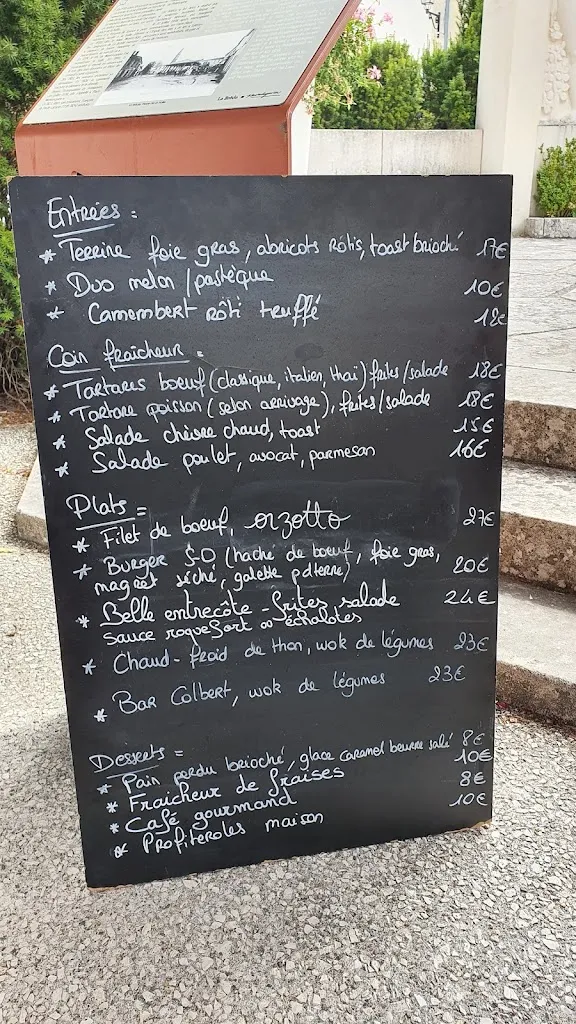 Entrées :
* Terrine foie gras, abricots rôtis, toast brioché 17€
* Duo melon / pastèque 10€
* Camembert rôti truffé 12€
Coin fraîcheur :
* Tartares boeuf (classique, italien, thaï) frites/salade 18€
* Tartare poisson (selon arrivage), frites/salade 18€
* Salade chèvre chaud, toast 15€
* Salade poulet, avocat, parmesan 16€
Plats :
* Filet de boeuf, orzotto 27€
* Burger S-O (haché de boeuf, foie gras,
magret séché, galette pdterre) 20€
* Belle entrecôte - frites, salade 24€
sauce roquefort ou échalotes
* Chaud-froid de thon, wok de légumes 23€
* Bar Colbert, wok de légumes 23€
Desserts =
* Pain perdu brioché, glace caramel beurre salé 8€
* Fraîcheur de fraises 10€
* Café gourmand 8€
* Profiteroles maison 10€